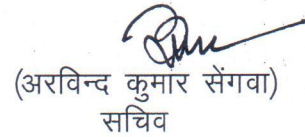 (अरविन्द कुमार सेंगवा)
सचिव